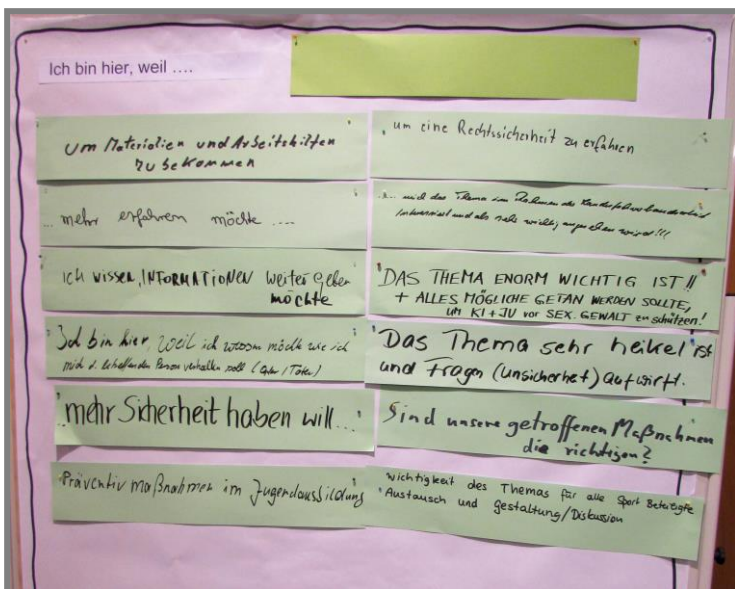 Ich bin hier, weil ....
um Materialien und Arbeitshilfen
zu bekommen
... mehr erfahren möchte ....
ich wissen, INFORMATIONEN weiter geben
möchte
Ich bin hier, weil ich wissen möchte wie ich
mich d. betreffenden Person verhalten soll (Opfer / Täter)
mehr Sicherheit haben will...
Präventivmaßnahmen im Jugendausbildung
um eine Rechtssicherheit zu erfahren
... mich das Thema im Rahmen des
interessiert und als sehr wichtig angesehen wird!!!
DAS THEMA ENORM WICHTIG IST!!
+ ALLES MÖGLICHE GETAN WERDEN SOLLTE,
UM KI + JU vor SEX. GEWALT zu schützen!
Das Thema sehr heikel ist
und Fragen (Unsicherheit) aufwirft.
Sind unsere getroffenen Maßnahmen
die richtigen?
Wichtigkeit des Themas für alle Sport Beteiligte
Austausch und gestaltung/Diskussion